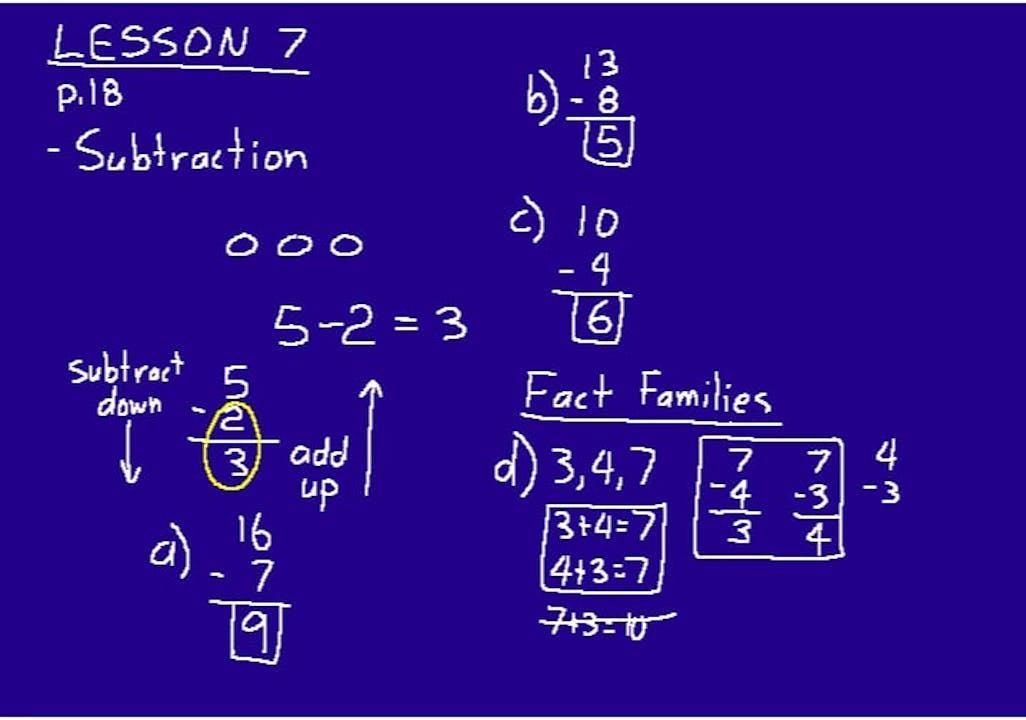 LESSON 7
p.18
- Subtraction
5-2 = 3
subtract
down
5
- 2
3
add
up
a) 16
- 7
9
b) 13
- 8
5
c) 10
- 4
6
Fact Families
d) 3,4,7
3+4=7
4+3=7
7+3=10
7
-4
3
7
-3
4
4
-3